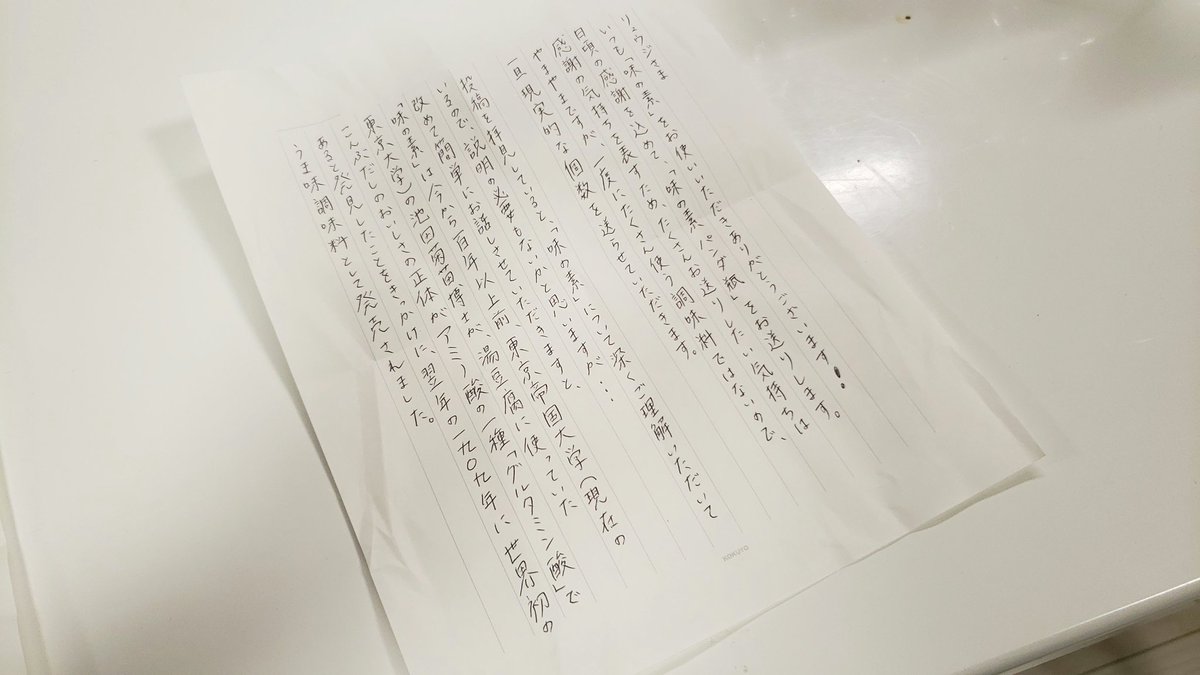 リュウジさま
いつも「味の素」をお使いいただきありがとうございます!
日頃の感謝を込めて、「味の素 パンダ瓶」をお送りします。
感謝の気持ちを表すため、たくさんお送りしたい気持ちは
やまやまですが、一度にたくさん使う調味料ではないので、
一旦現実的な個数を送らせていただきます。
投稿を拝見していると、「味の素」について深くご理解いただいて
いるので、説明の必要もないかと思いますが...
改めて簡単にお話しさせていただきますと、
「味の素」は今から百年以上前、東京帝国大学(現在の
東京大学)の池田菊苗博士が、湯豆腐に使っていた
こんぶだしのおいしさの正体が、アミノ酸の一種「グルタミン酸」で
あると発見したことをきっかけに、翌年の一九〇九年に世界初の
うま味調味料として発売されました。
KOKUYO